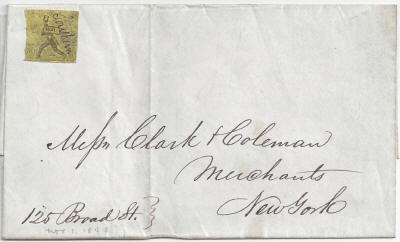 Messrs Clark & Coleman
Merchants
New York
120 Broad St.